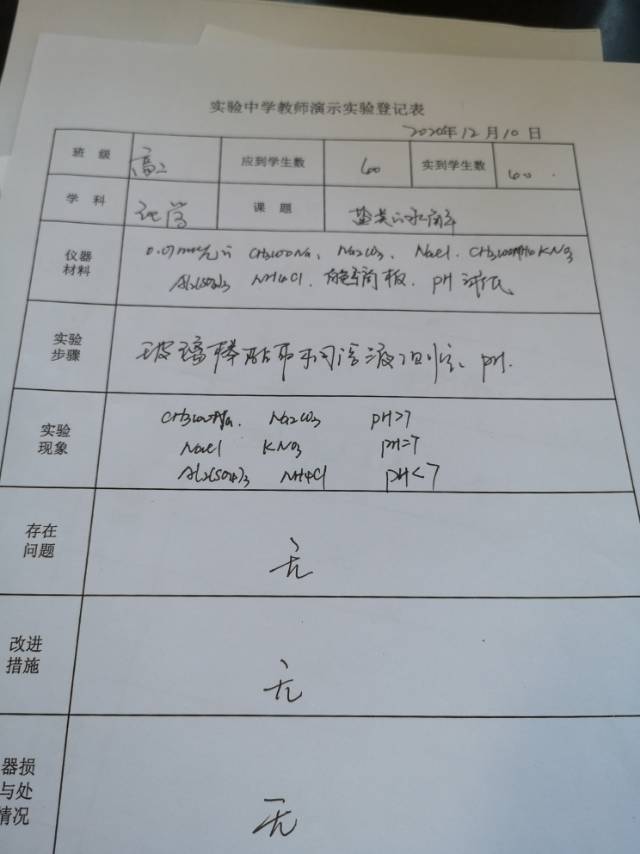 实验中学教师演示实验登记表
2020年12月10日
班 级 高二 应到学生数 60 实到学生数 60.
学 科 化学 课 题 盐类的水解
仪器材料 CH3COONa、Na2CO3、NaCl、CH3COONH4 KNO3
Al2(SO4)3 NH4Cl、点滴板、pH试纸
实验步骤 玻璃棒蘸取不同溶液 pH.
实验现象 CH3COONa、 Na2CO3 pH>7
NaCl KNO3 pH=7
Al2(SO4)3 NH4Cl pH<7
存在问题 无
改进措施 无
器损与处情况 无